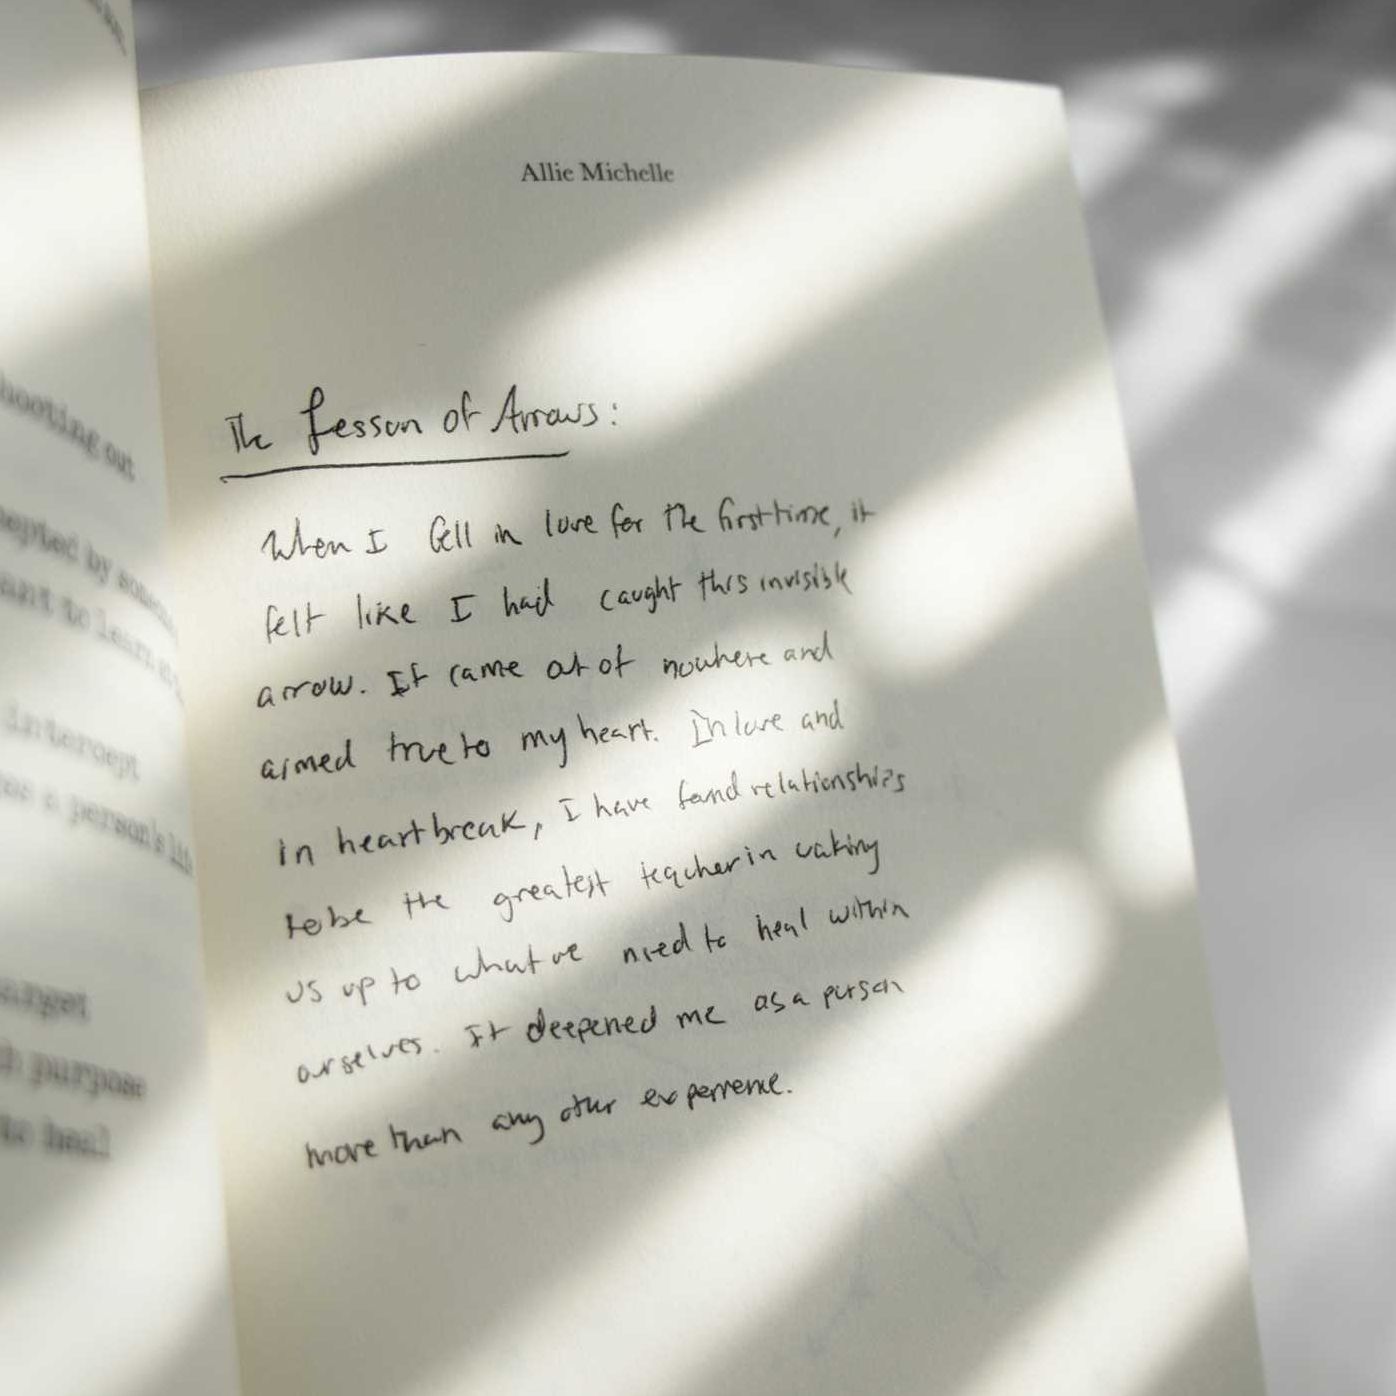 hooting out
by
to learn
intercept
a person's
purpose
to heal
Allie Michelle
The Lesson of Arrows:
When I fell in love for the first time, it
felt like I had caught this invisible
arrow. It came out of nowhere and
aimed true to my heart. In love and
in heartbreak, I have found relationships
to be the greatest teacher in waking
us up to what we need to heal within
ourselves. It deepened me as a person
more than any other experience.